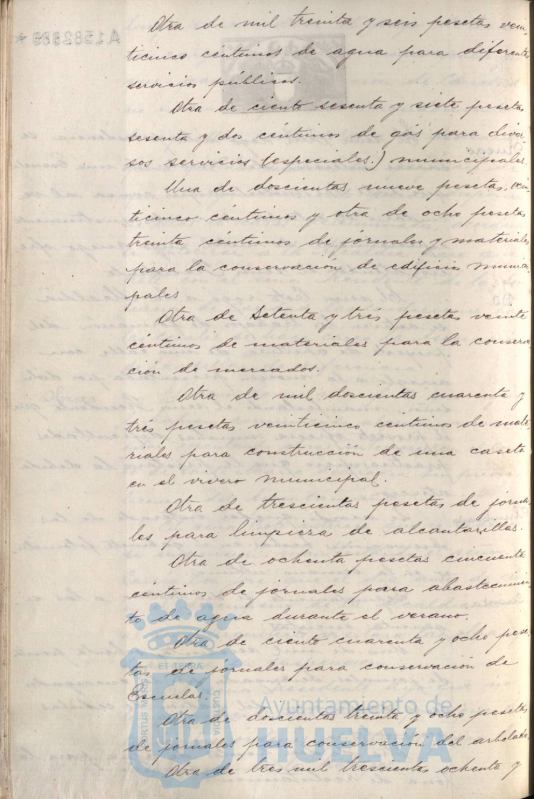 A1582889 *
Otra de mil treinta y seis pesetas vein-
ticinco céntimos de agua para diferentes
servicios públicos.
Otra de ciento sesenta y siete pesetas
sesenta y dos céntimos de gas para diver
sos servicios (especiales.) municipales
Una de doscientas nueve pesetas, vein
ticinco céntimos y otra de ocho pesetas
treinta céntimos de jornales y materiales
para la conservación de edificios munici
pales
Otra de Setenta y tres pesetas veinte
céntimos de materiales para la conserva
ción de mercados.
Otra de mil doscientas cuarenta y
tres pesetas veinticinco céntimos de mate
riales para construcción de una caseta
en el vivero municipal.
Otra de trescientas pesetas de jorna
les para limpieza de alcantarillas.
Otra de ochenta pesetas cincuenta
céntimos de jornales para abastecimien
to de agua durante el verano.
Otra de ciento cuarenta y ocho pese
tas de jornales para conservación de
Escuelas.
Otra de doscientas treinta y ocho pesetas
de jornales para conservación del arbolado
Otra de tres mil trescientas ochenta y
Ayuntamiento de
HUELVA